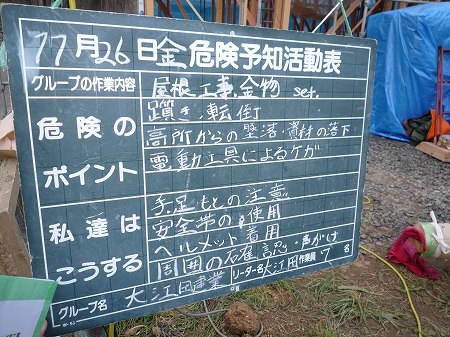 11月26日金危険予知活動表
グループの作業内容 屋根工事.金物 set.
危険のポイント
躓き.転倒
高所からの墜落・資材の落下
電動工具によるケガ
私達はこうする
手足もとの注意
安全帯の使用
ヘルメット着用
周囲の確認・声がけ
グループ名 大江田建業 リーダー名 大江田 作業員 7名